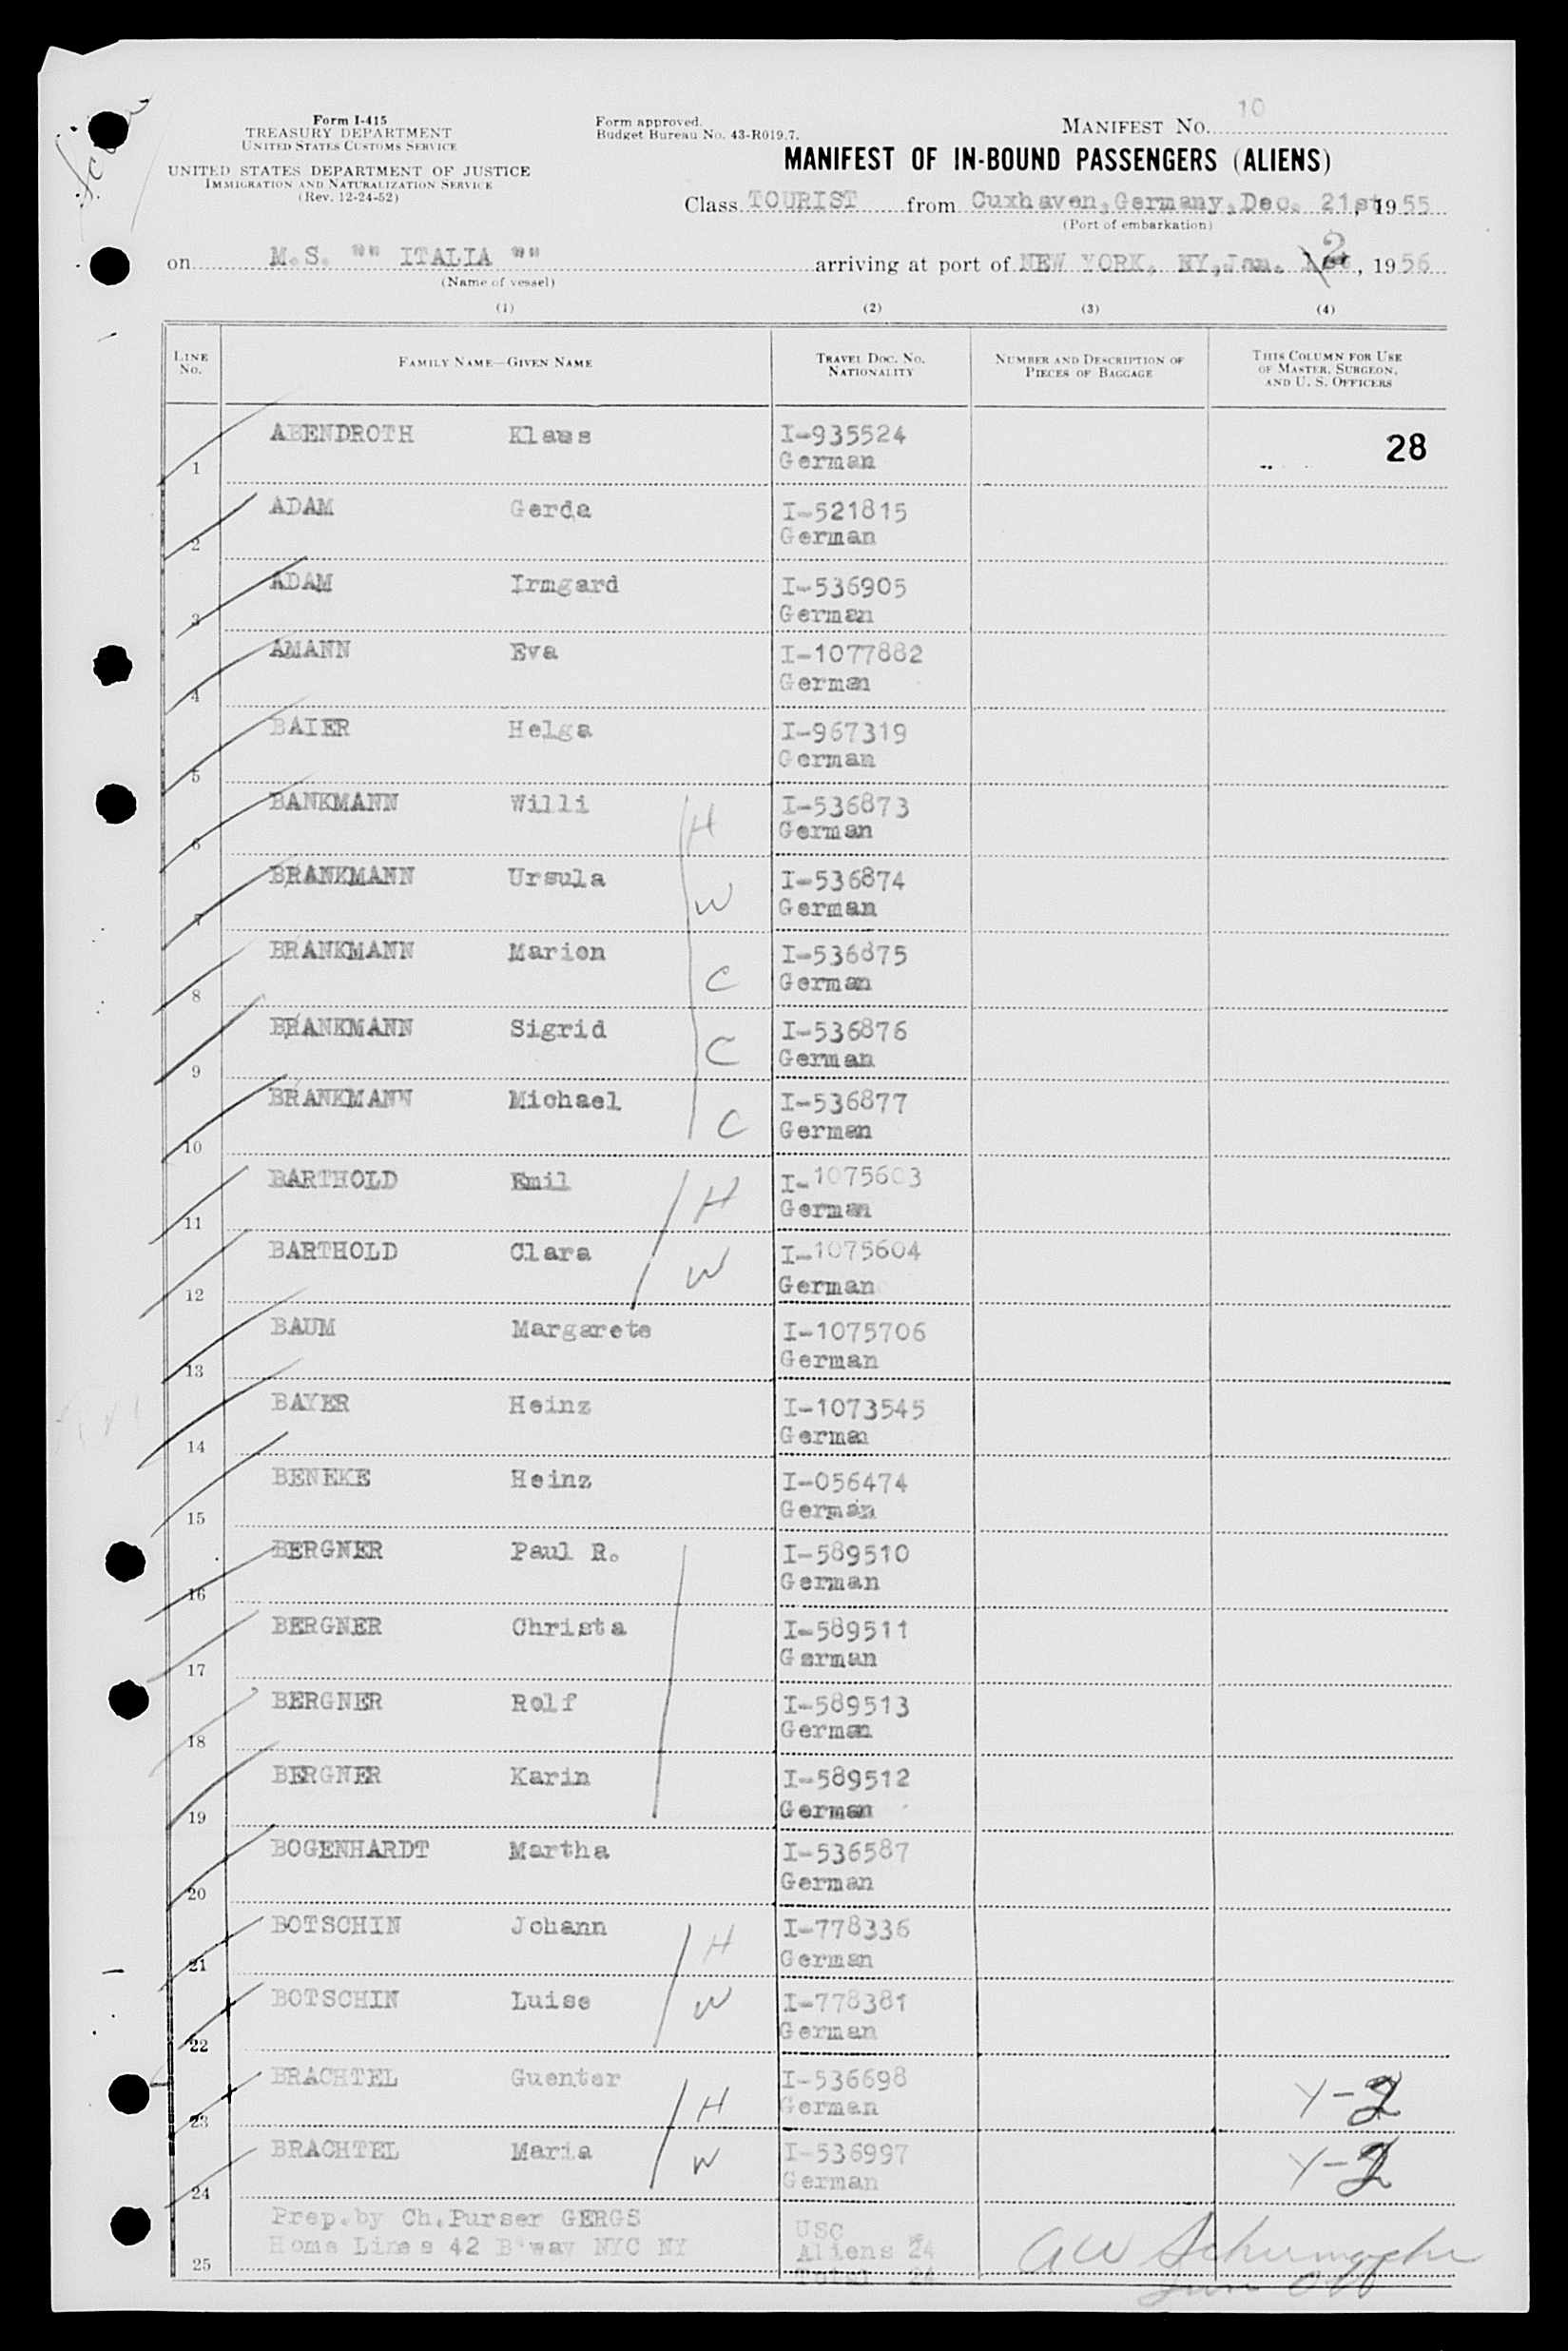 Form I-415
TREASURY DEPARTMENT
UNITED STATES CUSTOMS SERVICE
UNITED STATES DEPARTMENT OF JUSTICE
IMMIGRATION AND NATURALIZATION SERVICE
(Rev. 12-24-52)
Form approved.
Budget Bureau No. 43-R019.7.
MANIFEST NO. 10
MANIFEST OF IN-BOUND PASSENGERS (ALIENS)
Class TOURIST from Cuxhaven,Germany,Dec. 21st, 1955
(Port of embarkation)
on M.S. "" ITALIA "" arriving at port of NEW YORK, NY,Jan. 2, 1956
(Name of vessel)
(1) (2) (3) (4)
LINE NO. FAMILY NAME—GIVEN NAME TRAVEL DOC. NO. NATIONALITY NUMBER AND DESCRIPTION OF PIECES OF BAGGAGE THIS COLUMN FOR USE OF MASTER, SURGEON, AND U. S. OFFICERS
ABENDROTH Klaus I-935524 28
1 German
ADAM Gerda I-521815
2 German
ADAM Irmgard I-536905
3 German
AMANN Eva I-1077882
4 German
BAIER Helga I-967319
5 German
BANKMANN Willi H I-536873
6 German
BRANKMANN Ursula W I-536874
7 German
BRANKMANN Marion C I-536875
8 German
BRANKMANN Sigrid C I-536876
9 German
BRANKMANN Michael C I-536877
10 German
BARTHOLD Emil H I-1075603
11 German
BARTHOLD Clara W I-1075604
12 German
BAUM Margarete I-1075706
13 German
BAYER Heinz I-1073545
14 German
BENEKE Heinz I-056474
15 German
BERGNER Paul R. I-589510
16 German
BERGNER Christa I-589511
17 German
BERGNER Rolf I-589513
18 German
BERGNER Karin I-589512
19 German
BOGENHARDT Martha I-536587
20 German
BOTSCHIN Johann H I-778336
21 German
BOTSCHIN Luise W I-778381
22 German
BRACHTEL Guenter H I-536698 Y-2
23 German
BRACHTEL Maria W I-536997 Y-2
24 German
Prep.by Ch.Purser GERGS USC
Home Lines 42 B'way NYC NY Aliens 24
25 Total 24